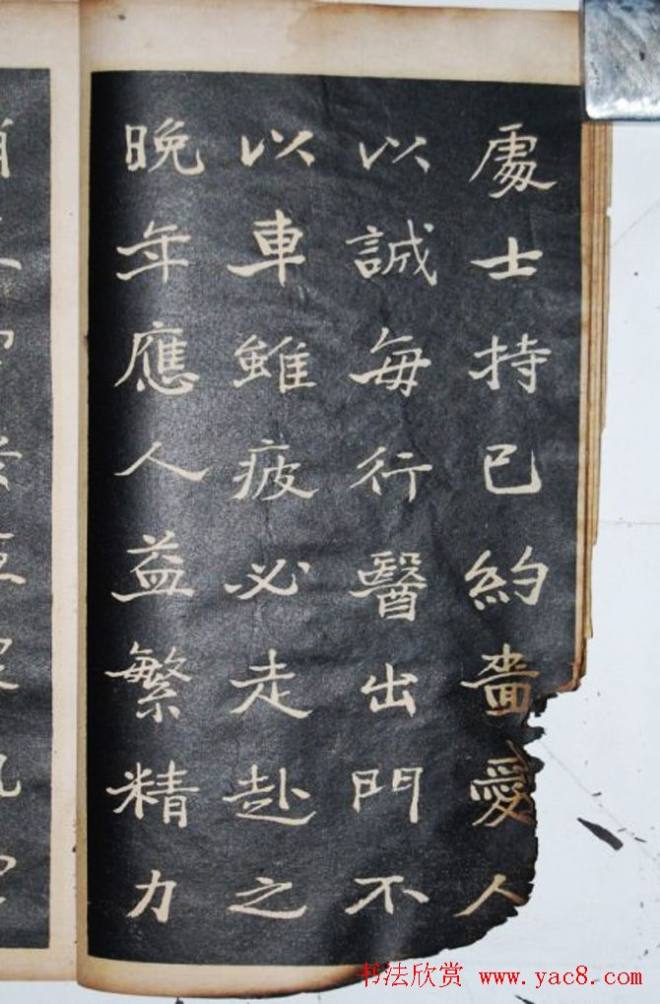 處士持已約嗇愛人
以誠每行醫出門不
以車雖疲必走赴之
晚年應人益繁精力
书法欣赏 www.yac8.com